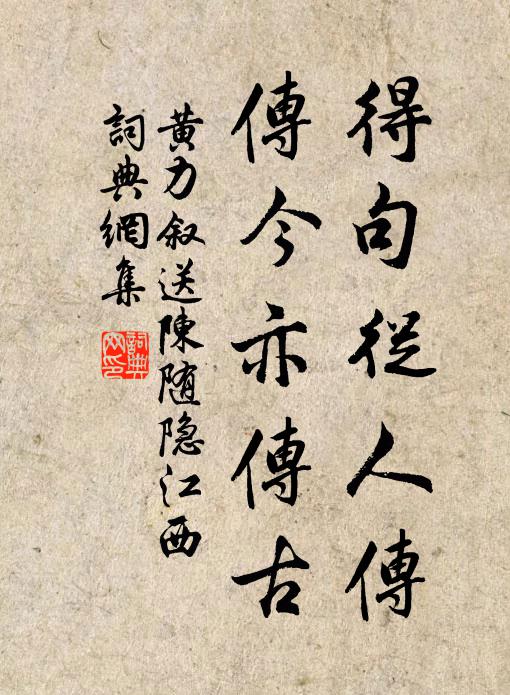 得句從人傳
傳今亦傳古
黄力叙送陳随隐江西
詞典網集
詞典网印